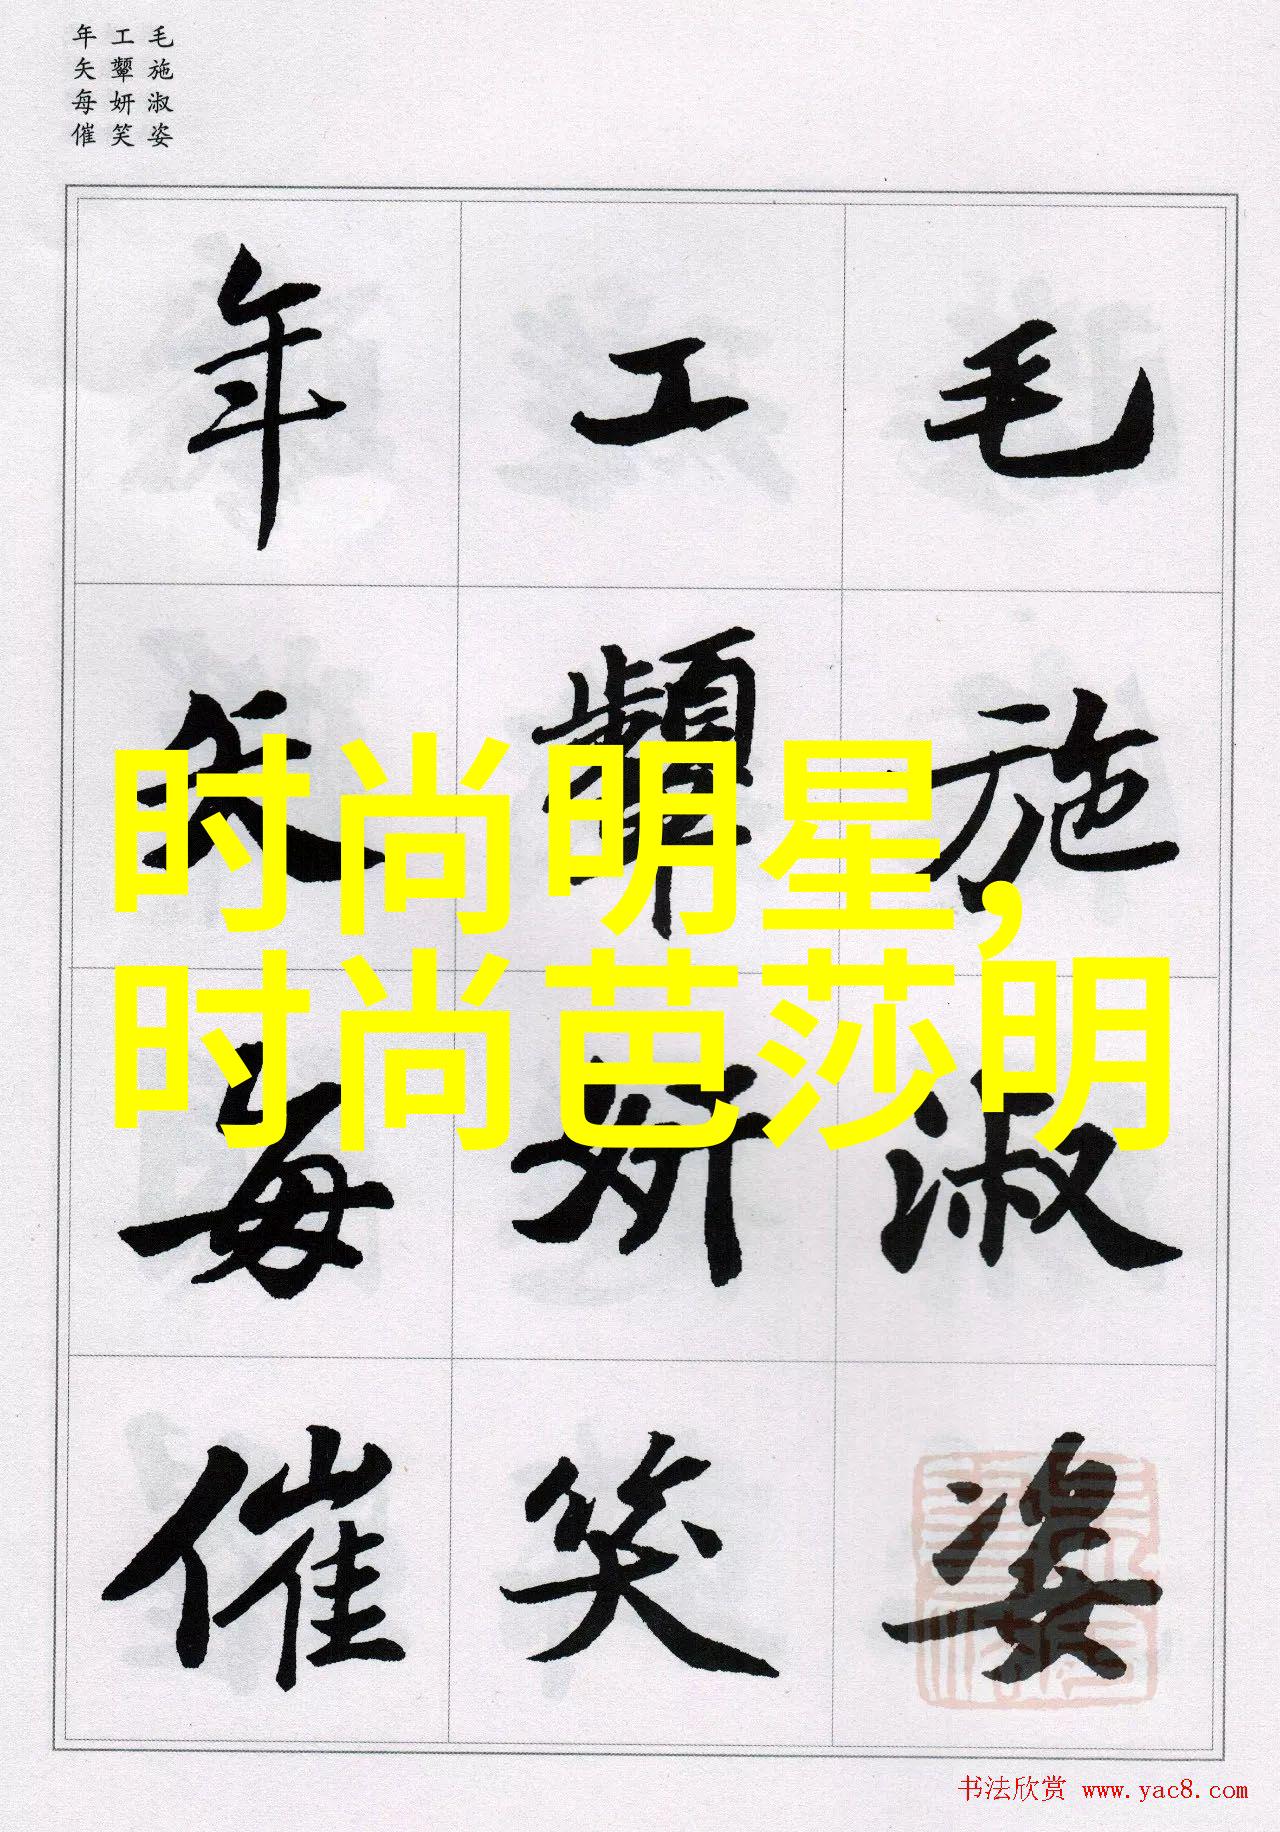 毛施淑姿
工颦妍笑
年矢每催
毛施淑姿
工颦妍笑
年矢每催
时尚明星,
时尚芭莎明
书法欣赏 www.yac8.com